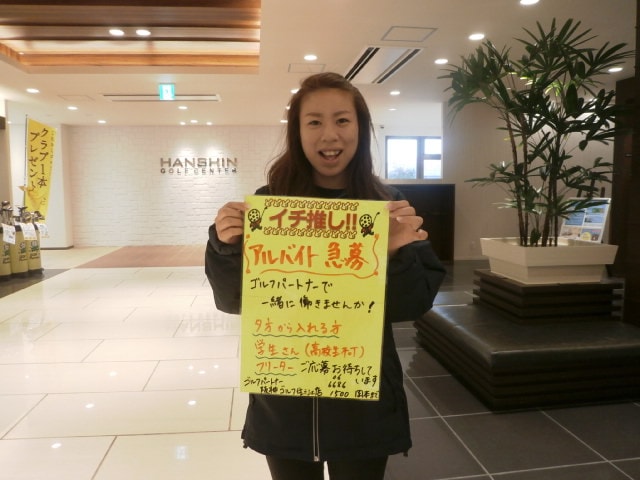 HANSHIN
GOLF CENTER
クラブ一本
プレゼント
イチ推し!!
アルバイト 急募
ゴルフパートナーで
一緒に働きませんか!
夕方から入れる方
学生さん(高校生不可)
フリーター ご応募お待ちして
います
ゴルフパートナー
06
6686
1500